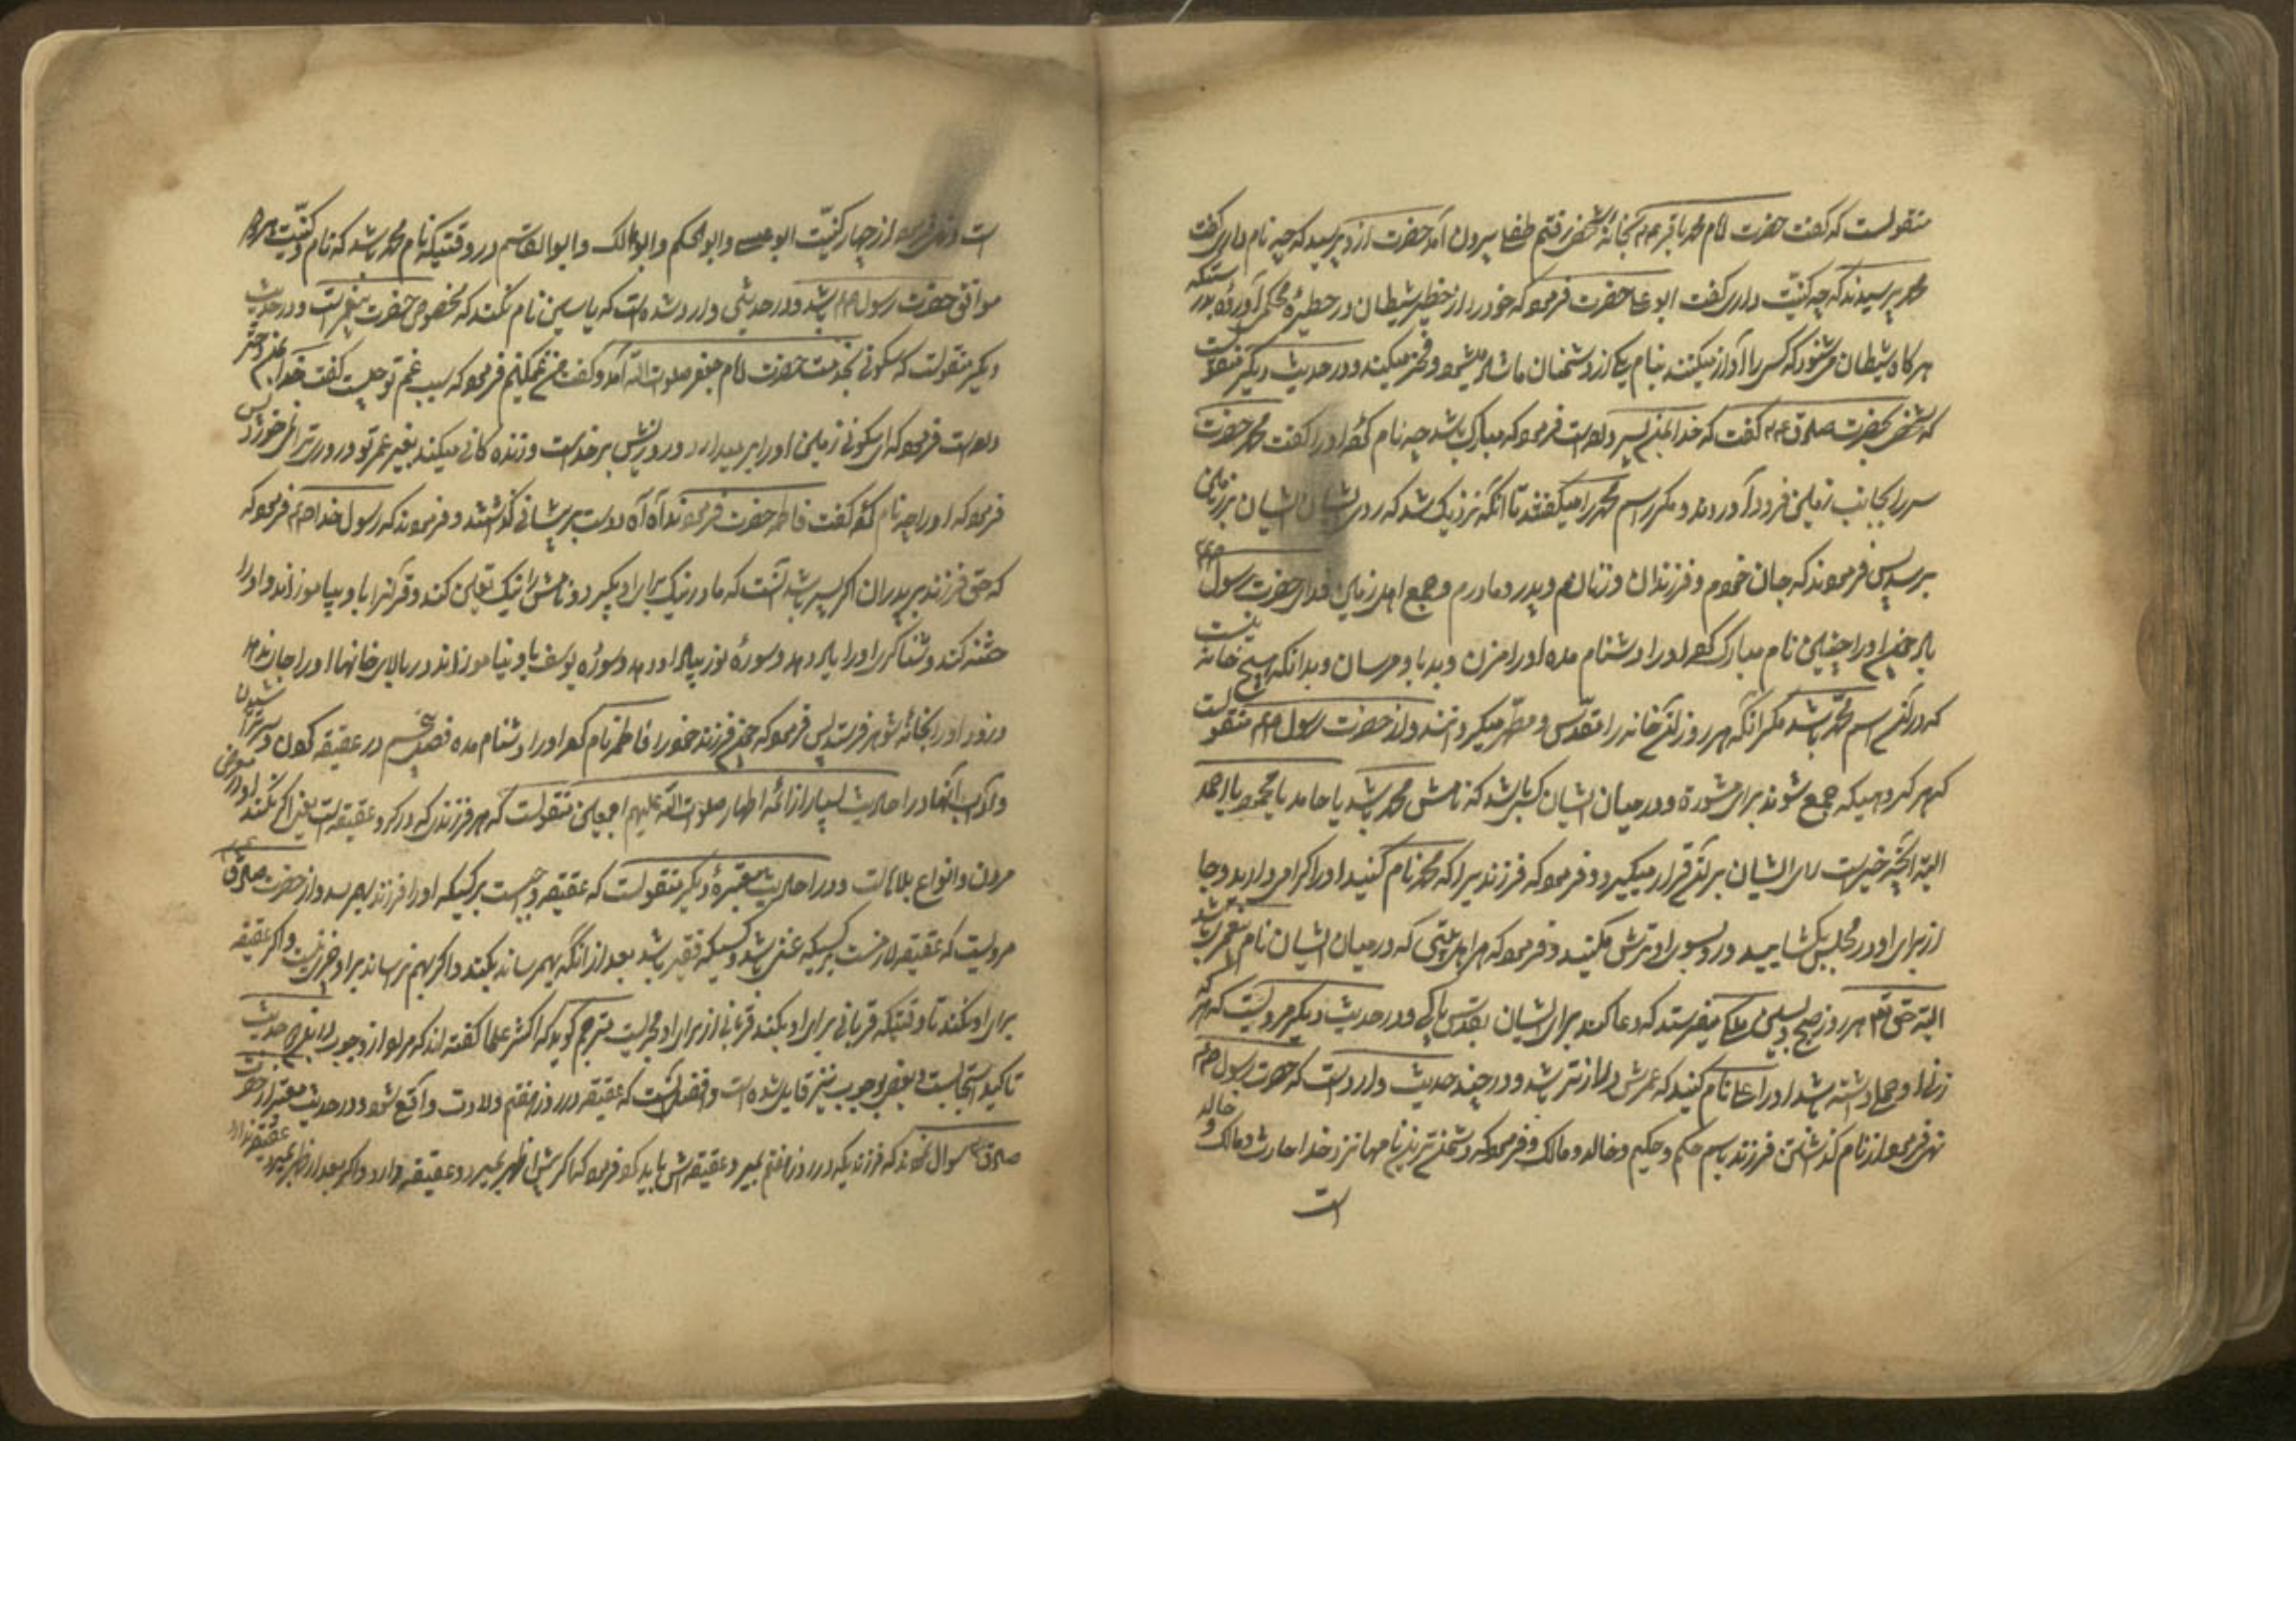 منقولست که گفت حضرت امام محمد باقر ع م بخانهٔ شخصی رفتم طفلی بیرون آمد حضرت ازو پرسید که چه نام داری گفت
محمد پرسیدند که چه کنیت داری گفت ابو علی حضرت فرمود که خود را از خطر شیطان در حظیرهٔ محکمی آوردهٔ بدرستیکه
هرگاه شیطان می شنود که کسی را آواز میکنند بنام یکی از دشمنان ما شاد میشود و فخر میکند و در حدیث دیگر منقولست
که شخصی بحضرت صادق ع م گفت که خدا بمن پسر داده است فرمود که مبارک باشد چه نام کردهٔ او را گفت محمد حضرت
سر را بجانب زمین فرود آوردند و مکرر اسم محمد را میگفتند تا آنکه نزدیک شد که روی ایشان بر زمین
برسد پس فرمودند که جان خودم و فرزندان و زنانم و پدر و مادرم و جمیع اهل زمین فدای حضرت رسول صم
باد چون او را چنین نام مبارک کردهٔ او را دشنام مده او را مزن و بد باو مرسان و بدانکه هیچ خانه نیست
که در آن اسم محمد باشد مگر آنکه هر روز آن خانه را مقدس و مطهر میگردانند و از حضرت رسول صم منقولست
که هر گروهیکه جمع شوند برای مشورة و در میان ایشان کسی باشد که نامش محمد باشد یا حامد یا محمود یا احمد
البته آنچه خیرست رای ایشان بر آن قرار میگیرد و فرمود که فرزندیرا که محمد نام کنید او را گرامی دارید و جا
از برای او در مجلس بگشایید و رو بسوی او ترش مکنید و فرمود که هر اهل بیتی که در میان ایشان نام پیغمبری باشد
البته حق تعالی هر روز صبح و پسین ملکی میفرستد که دعا کند برای ایشان بتقدس و پاکی و در حدیث دیگر مرویست که هر که
زن او حملی داشته باشد او را علی نام کنید که عمرش درازتر باشد و در چند حدیث وارد است که حضرت رسول صم
نهی فرمود از نام گذاشتن فرزند باسم حکم و حکیم و خالد و مالک و فرمود که دشمن ترین نامها نزد خدا حارث و مالک و خالد
است
است و نهی فرمود از چهار کنیت ابو عیسی و ابو الحکم و ابو مالک و ابو القاسم در وقتیکه نام محمد باشد که نام و کنیت هر دو
موافق حضرت رسول صم باشد و در حدیثی وارد شده است که یاسین نام نکنند که مخصوص حضرت پیغمبرست و در حدیث
دیگر منقولست که سکونی بخدمت حضرت امام جعفر صلوات الله آمد و گفت من غمگینم فرمود که سبب غم تو چیست گفت خدا بمن دختر
داده است فرمود که ای سکونی زمین او را بر میدارد و روزیش بر خداست و زنده گانی میکند بغیر عمر تو و روزی ترا نمی خورد پس
فرمود که او را چه نام کردهٔ گفت فاطمه حضرت فرمودند آه آه و دست بر پیشانی گذاشتند و فرمودند که رسول خدا صم فرمود که
که حق فرزند بر پدران اگر پسر باشد آنست که مادر نیک برای او بگیرد و نامش را نیک تعیین کند و قرآنرا باو بیاموزاند و او را
ختنه کند و شناکری او را یاد دهد و سورهٔ نور بیاد او دهد و سورهٔ یوسف باو نیاموزاند و در بالای خانها او را جا ندهد
و زود او را بخانهٔ شوهر فرستد پس فرمود که چون فرزند خود را فاطمه نام کرده او را دشنام مده فصل پنجم در عقیقه کردن و سر تراشیدن
و آداب آنها در احادیث بسیار از ائمه اطهار صلوات الله علیهم اجمعین منقولست که هر فرزندی که در گرو عقیقه است یعنی اگر نکنند او را در معرض
مردن و انواع بلاهاست و در احادیث معتبرهٔ دیگر منقولست که عقیقه واجبست بر کسیکه او را فرزند بهم رسد و از حضرت صادق ع م
مرویست که عقیقه لازمست بر کسیکه غنی باشد و کسیکه فقیر باشد بعد از آنکه بهم رساند بکند و اگر بهم نرساند بر او چیزی نیست و اگر عقیقه
برای او نکنند تا وقتیکه قربانی برای او بکنند قربانی از برای او مجزیست مترجم گوید که اکثر علما گفته اند که مراد از وجوب در این حدیث
تاکید استحبابست و بعضی بوجوب نیز قایل شده است و افضل آنست که عقیقه در روز هفتم ولادت واقع شود و در حدیث معتبر از حضرت
صادق ع م سوال نمودند که فرزندیکه در روز هفتم بمیرد عقیقه اش باید کرد فرمود که اگر پیش از ظهر بمیرد عقیقه ندارد و اگر بعد از ظهر بمیرد عقیقه دارد